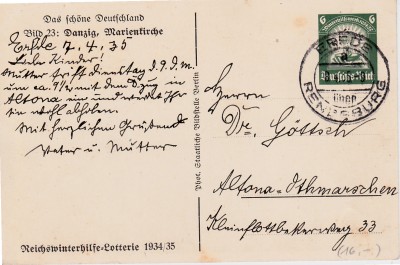 Das schöne Deutschland
Bild 23: Danzig, Marienkirche
Erfde 7.4.35
Liebe Kinder!
Mutter trifft Dienstag d. 9. d. M.
um ca. 9½ mit dem D.zug in
Altona ein und werdet Ihr
sie wohl abholen.
Mit herzlichen Grüßen
Vater u. Mutter
Reichswinterhilfe-Lotterie 1934/35
Phot. Staatliche Bildstelle Berlin
6 6
Deutsches Reich
ERFDE
über
RENDSBURG
Herrn
Dr. Göttsch
Altona-Othmarschen
Kleinflottbekerweg 33
(16,-)